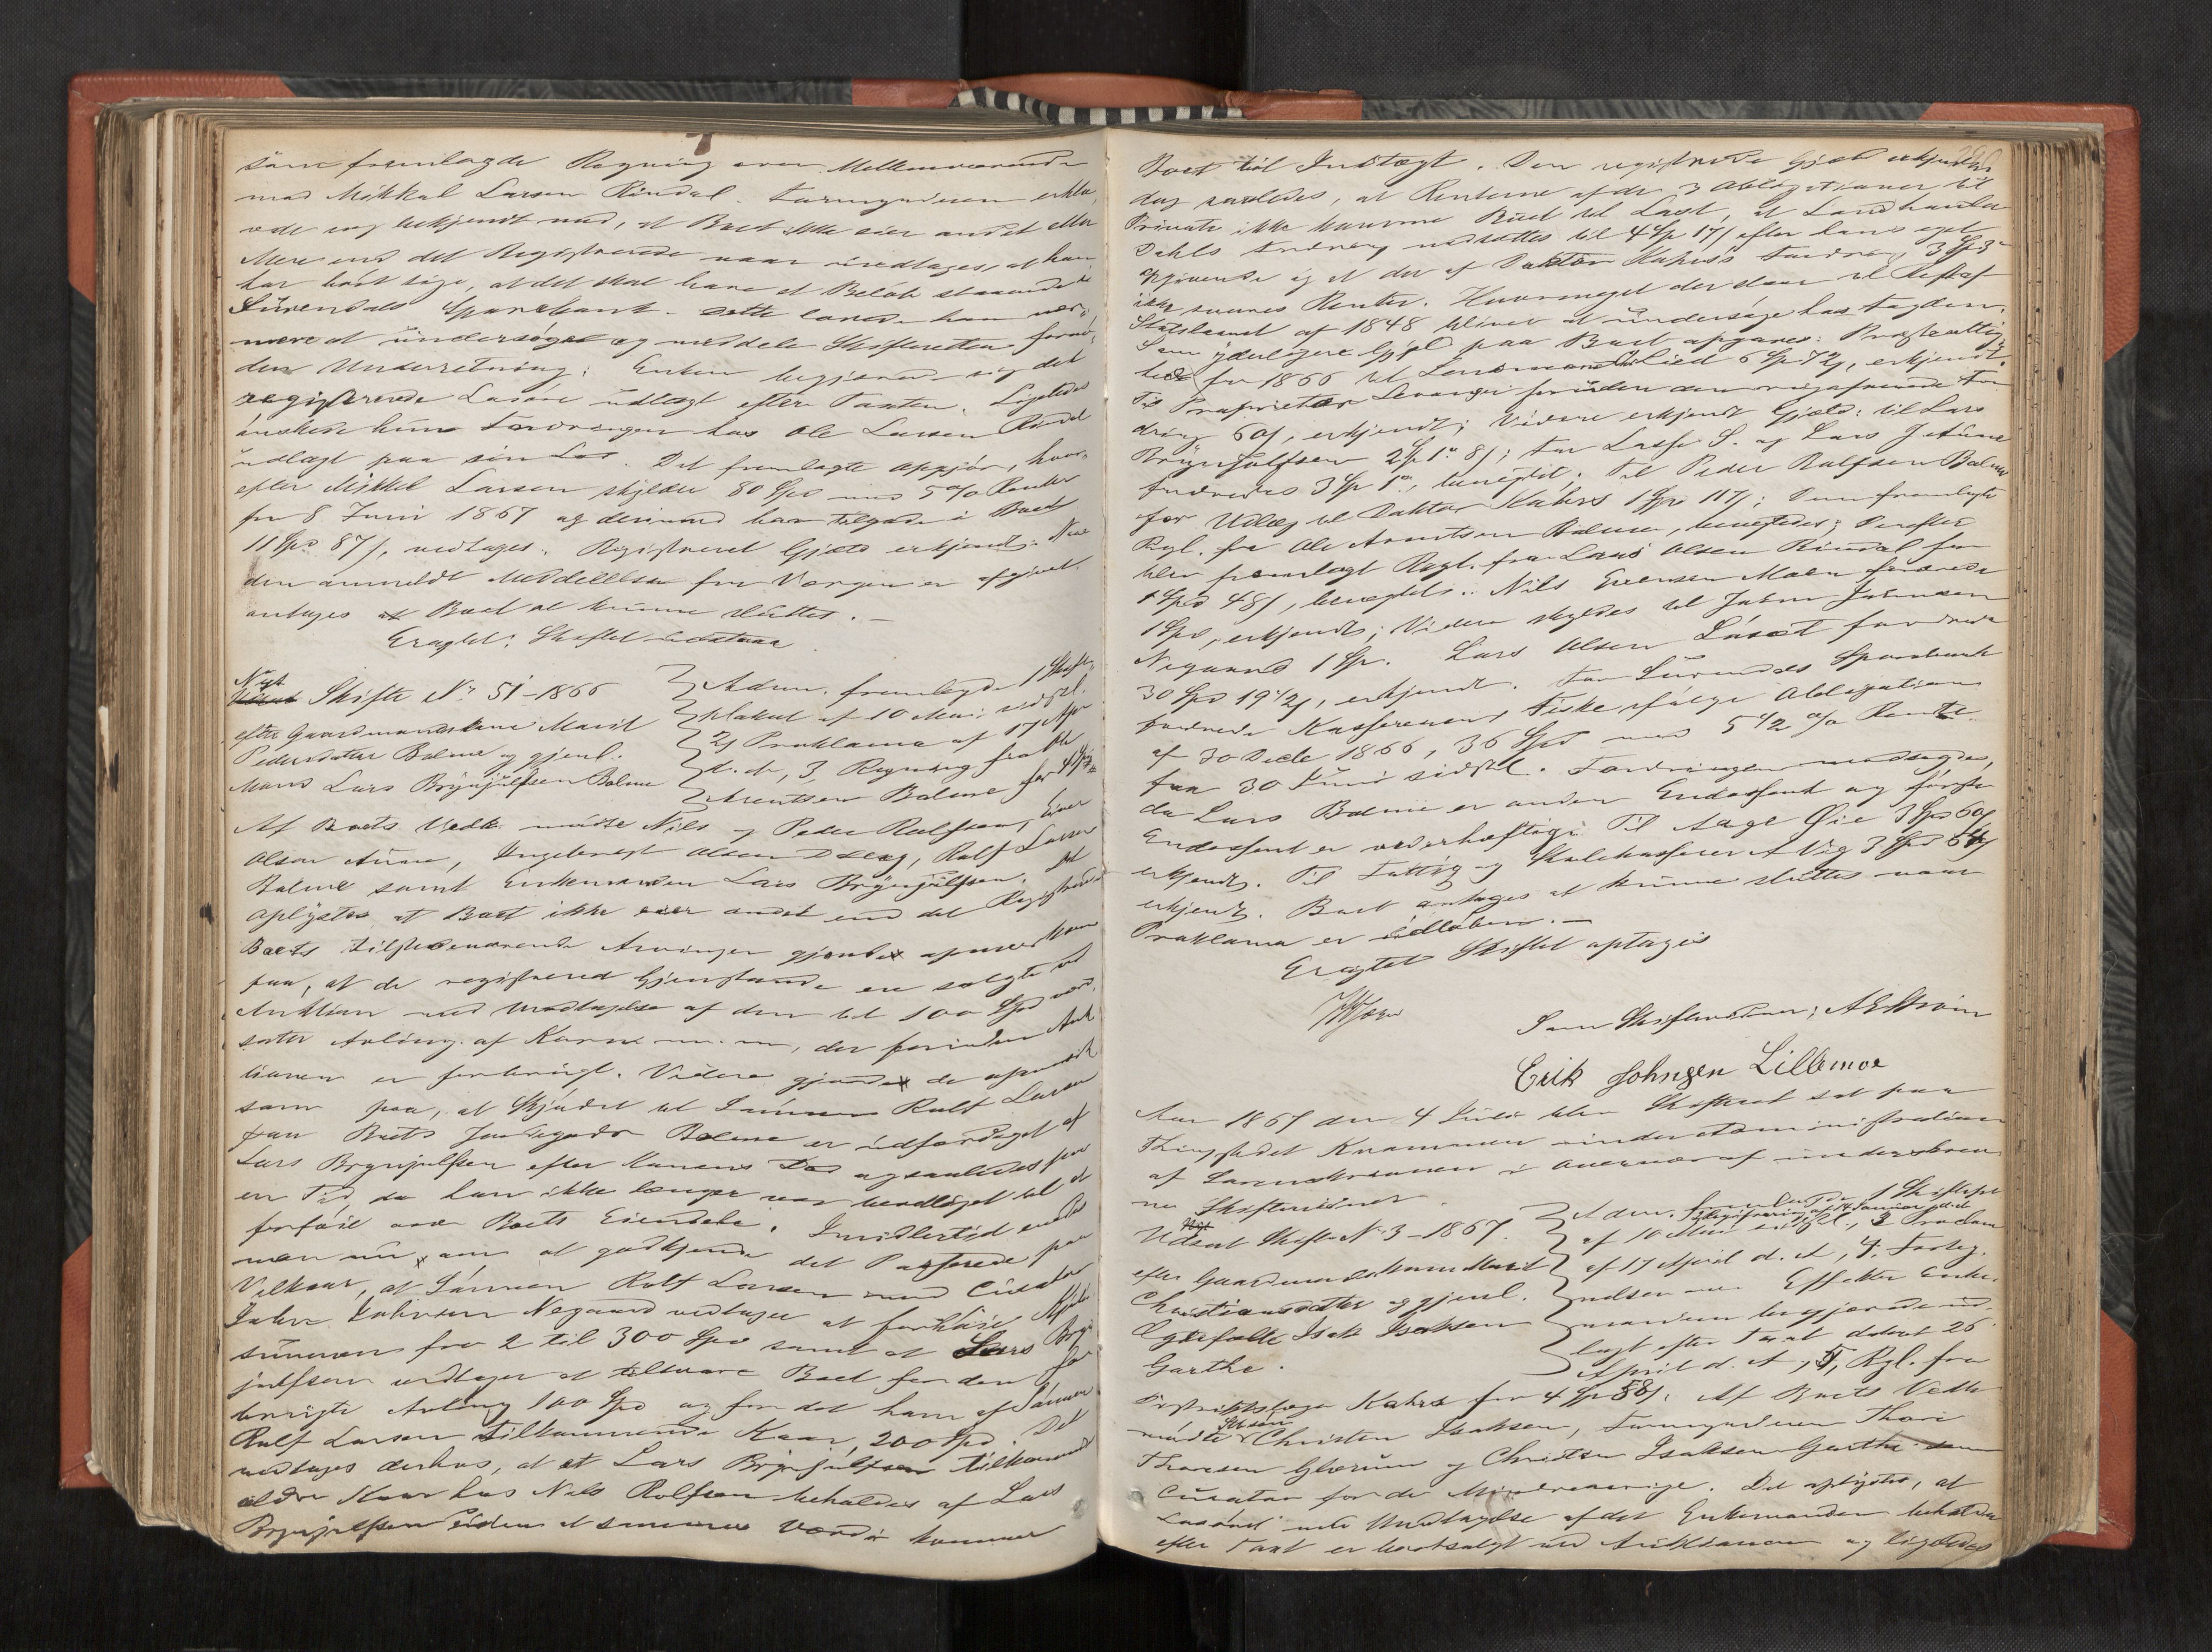 som fremlagde Regning over Mellemværende
med Mikkel Larsen Rindal. Formynderen erklæ-
rede sig bekjendt med, at Boet ikke eier andet eller
Mere end det Registrerede naar undtages, at han
har hørt sige, at det skal have et Beløb staaende i
Surendals Sparebank. Dette lovede han nær-
mere at undersøge og meddele Skifteretten fornø-
den Underretning. Enken begjærede sig det
registrerede Løsøre udlagt efter Taxten. Ligeledes
ønskede hun Fordringen hos Ole Larsen Rindal
udlagt paa sin Lod. Det fremlagte Opgjør, hvor-
efter Mikkel Larsen skylder 80 Spd med 5 % Renter
fra 8 Juni 1867 og derimod har tilgode i Boet
11 Spd 87 s, vedtages. Registreret Gjæld erkjendt. Naar
den anmeldt Meddelelse fra Værgen er afgivet
antages at Boet at kunne sluttes. -
Eragtet: Skiftet
Nyt
Skifte No 51 - 1866
efter Gaardmandskone Marit
Pedersdatter Bolme og gjenl.
Mand Lars Brynjulfsen Bolme
Adm. fremlagde 1 Skifte-
plakat af 10 Mai sidstl.
2, Proklama af 17 Apr
d. A., 3, Regning fra Ole
Arentsen Bolme for 4 Spd
Af Boets Vedk. mødte Nils og Peder Rolfsen, Iver
Olsen Aune, Ingebregt Olsen, Rolf Larsen
Bolme samt Enkemanden Lars Brynjulfsen. Det
oplystes at Boet ikke eier andet end det Registrerede
Boets tilstedeværende Arvinger gjorde opmærksom
paa, at de registrered Gjenstande ere solgte ved
Auktion med Undtagelse af den til 100 Spd værd-
satte Avling af Korn m. m., der forinden Auk
tionen er forbrugt. Videre gjorde de opmærk
som paa, at Skjødet til Sønnen Rolf Larsen
paa Boets Jordegods Bolme er udfærdiget af
Lars Brynjulfsen efter Konens Død og saaledes paa
en Tid, da han ikke længer var berettiget til at
forføie over Boets Eiendele. Imidlertid enedes
man nu om at godkjende det Passerede paa
Vilkaar, at Sønnen Rolf Larsen med Curator
John Johnsen Negaard vedtager at forhøie Skjøde
summen fra 2 til 300 Spd samt at Lars Bryn
julfsen vedtager at tilsvare Boet for den for
brugte Avling 100 Spd og for det ham af Sønnen
Rolf Larsen tilkommende Kaar 200 Spd. Det
vedtages derhos, at et Lars Brynjulfsen tilkommende
ældre Kaar hos Nils Rolfsen beholdes af Lars
Brynjulfsen uden at sammes Værdi kommer
Boet til Indtægt. Den registrerede Gjæld erkjendtes
dog saaledes, at Renterne af de 3 Obligationer til
Private ikke komme Boet til Last, at Landhandler
Dahls Fordring nedsættes til 4 Spd 17 s efter hans eget
Opgivende og at der af Doktor Kahrs's Fordring 3 Spd 3
ikke svares Renter. Hvormeget der staar til Rest af
Statslaanet af 1848 bliver at undersøge hos Fogden.
Som yderligere Gjæld paa Boet opgaves: Præsterettig-
hed for 1866 til Lensmand Lied 6 Spd 72 s, erkjendt.
Til Proprietær foruden den registrerede For
dring 60 s, erkjendt; Videre erkjendt Gjæld: til Lars
Brynjulfsen 2 Spd 1 ort 8 s; for Lasse S. og Lars J. Aune
fordredes 3 Spd 1 ort, benegtet. Til Peder Rolfsen Bolme
for Udlæg til Doktor Kahrs 1 Spd 117 s; Den fremlagte
Rgl. fra Ole Arentsen Bolme, benegtedes; Derefter
blev fremlagt Regl. fra Lars Olsen Rindal for
1 Spd 48 s, benegtet. Nils Evensen Moen fordrede
1 Spd, erkjendt; Videre skyldes til John Johnsen
Negaard 1 Spd. Lars Olsen fordrede
30 Spd 19 1/2 s, erkjendt. For Surendals Sparebank
fordrede Kasserer Fiske ifølge Obligation
af 30 Decbr 1866, 36 Spd med 5 1/2 % Rente
fra 30 Juni sidstl. Fordringen modsagdes,
da Lars Bolme er anden Endossent og første
Endossent er vederhæftig. Til Aage Øie 3 Spd 60 s
erkjendt. Til Fattig og Skolekasserer A Vig 3 Spd
erkjendt. Boet antages at kunne sluttes naar
Proklama er udløben. -
Eragtet Skiftet optages
Som Skiftevidner; A E Strøm
Erik Johnsen Lillemoe
Aar 1867 den 4 Juli blev Skifteret sat paa
Thingstedet Kvammen under Administration
af Sorenskriveren i Overvær af underskrev
ne Skiftevidner.
Nyt
Udsat Skifte No 3 - 1867.
efter Gaardmandskone Marit
Christiansdatter og gjenl.
Ægtefælle Isak Isaksen
Garthe.
Adm. fremlagde 1 Skiftepl
af 10 Mai sidstl., 3 Proklam
af 17 April d. A, 4, Forteg-
nelsen over Effekter Enke-
manden begjærede ud-
lagt efter Taxt dateret 26
April d. A, 5, Rgl. fra
Distriktslæge Kahrs for 4 Spd 58 s. Af Boets Vedk
mødte Sønnen Christen Isaksen, Formynderen Thore
Thoresen Glærum og Christen Isaksen Garthe som
Curator for de Mindreaarige. Det oplystes, at
Løsøret med Undtagelse af det Enkemanden beholder
efter Taxt er bortsolgt ved Auktionen og ligeledes